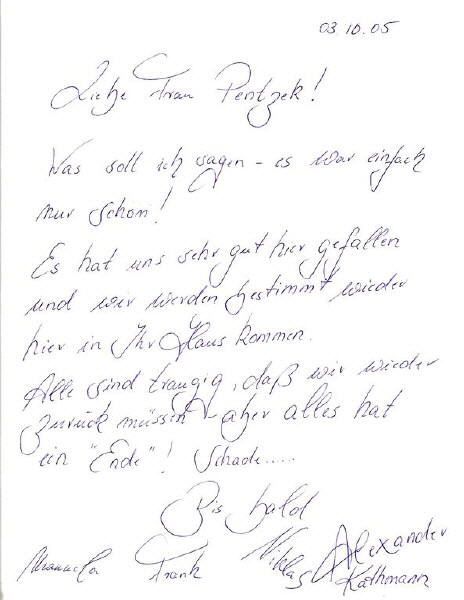 03.10.05
Liebe Frau Pentzek!
Was soll ich sagen - es war einfach
nur schön!
Es hat uns sehr gut hier gefallen
und wir werden bestimmt wieder
hier in Ihr Haus kommen.
Alle sind traurig, daß wir wieder
zurück müssen - aber alles hat
ein "Ende"! Schade.....
Bis bald
Manuela Frank Niklas Alexander
Kothmann